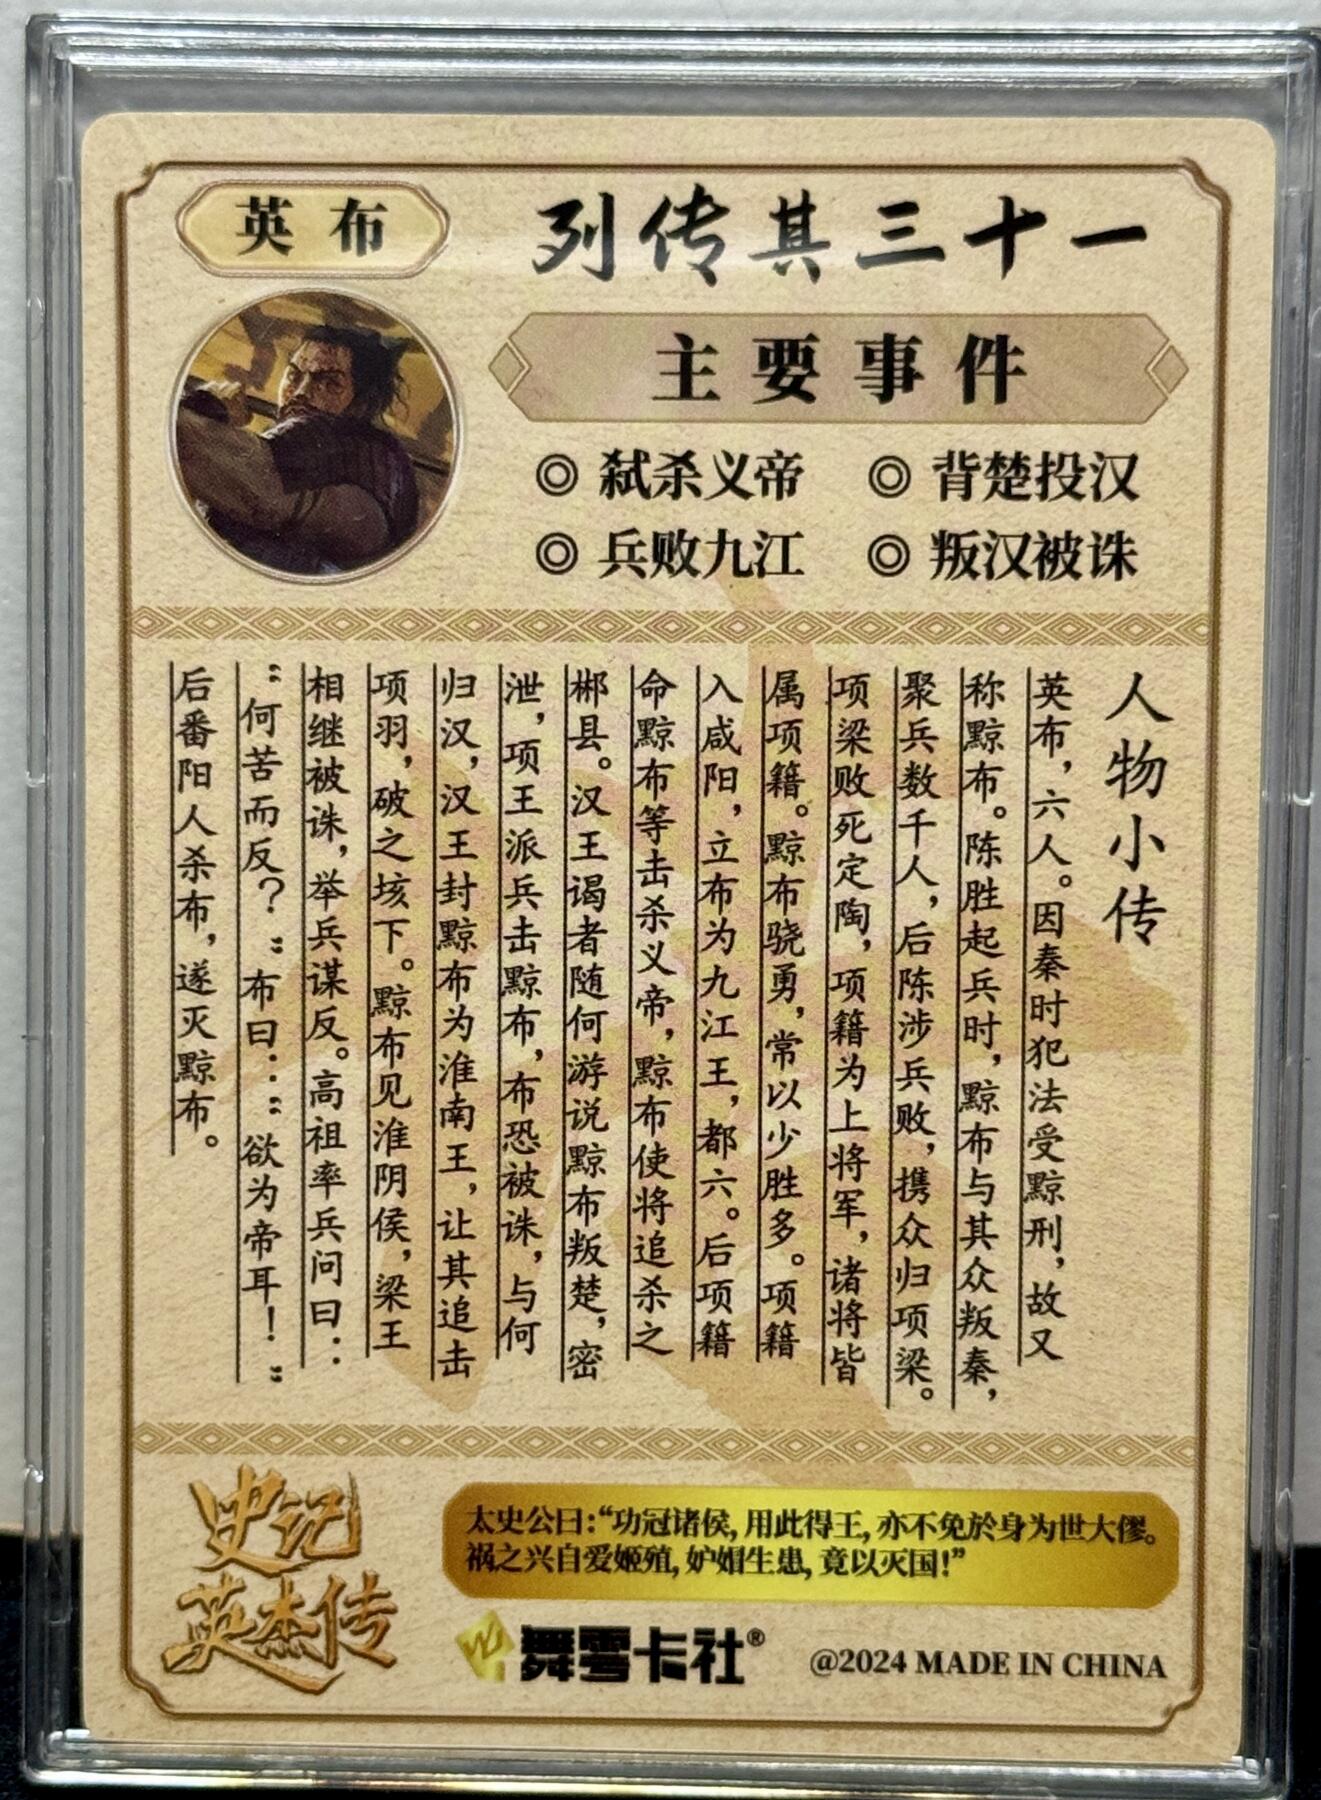 英布
列传其三十一
主要事件
◎ 弑杀义帝 ◎ 背楚投汉
◎ 兵败九江 ◎ 叛汉被诛
人物小传
英布，六人。因秦时犯法受黥刑，故又
称黥布。陈胜起兵时，黥布与其众叛秦，
聚兵数千人，后陈涉兵败，携众归项梁。
项梁败死定陶，项籍为上将军，诸将皆
属项籍。黥布骁勇，常以少胜多。项籍
入咸阳，立布为九江王，都六。后项籍
命黥布等击杀义帝，黥布使将追杀之
郴县。汉王谒者随何游说黥布叛楚，密
泄，项王派兵击黥布，布恐被诛，与何
归汉，汉王封黥布为淮南王，让其追击
项羽，破之垓下。黥布见淮阴侯，梁王
相继被诛，举兵谋反。高祖率兵问曰：
“何苦而反？”布曰：“欲为帝耳！”
后番阳人杀布，遂灭黥布。
史记
英杰传
太史公曰:“功冠诸侯,用此得王,亦不免於身为世大僇。
祸之兴自爱姬殖,妒媢生患,竟以灭国!”
舞雩卡社®
@2024 MADE IN CHINA